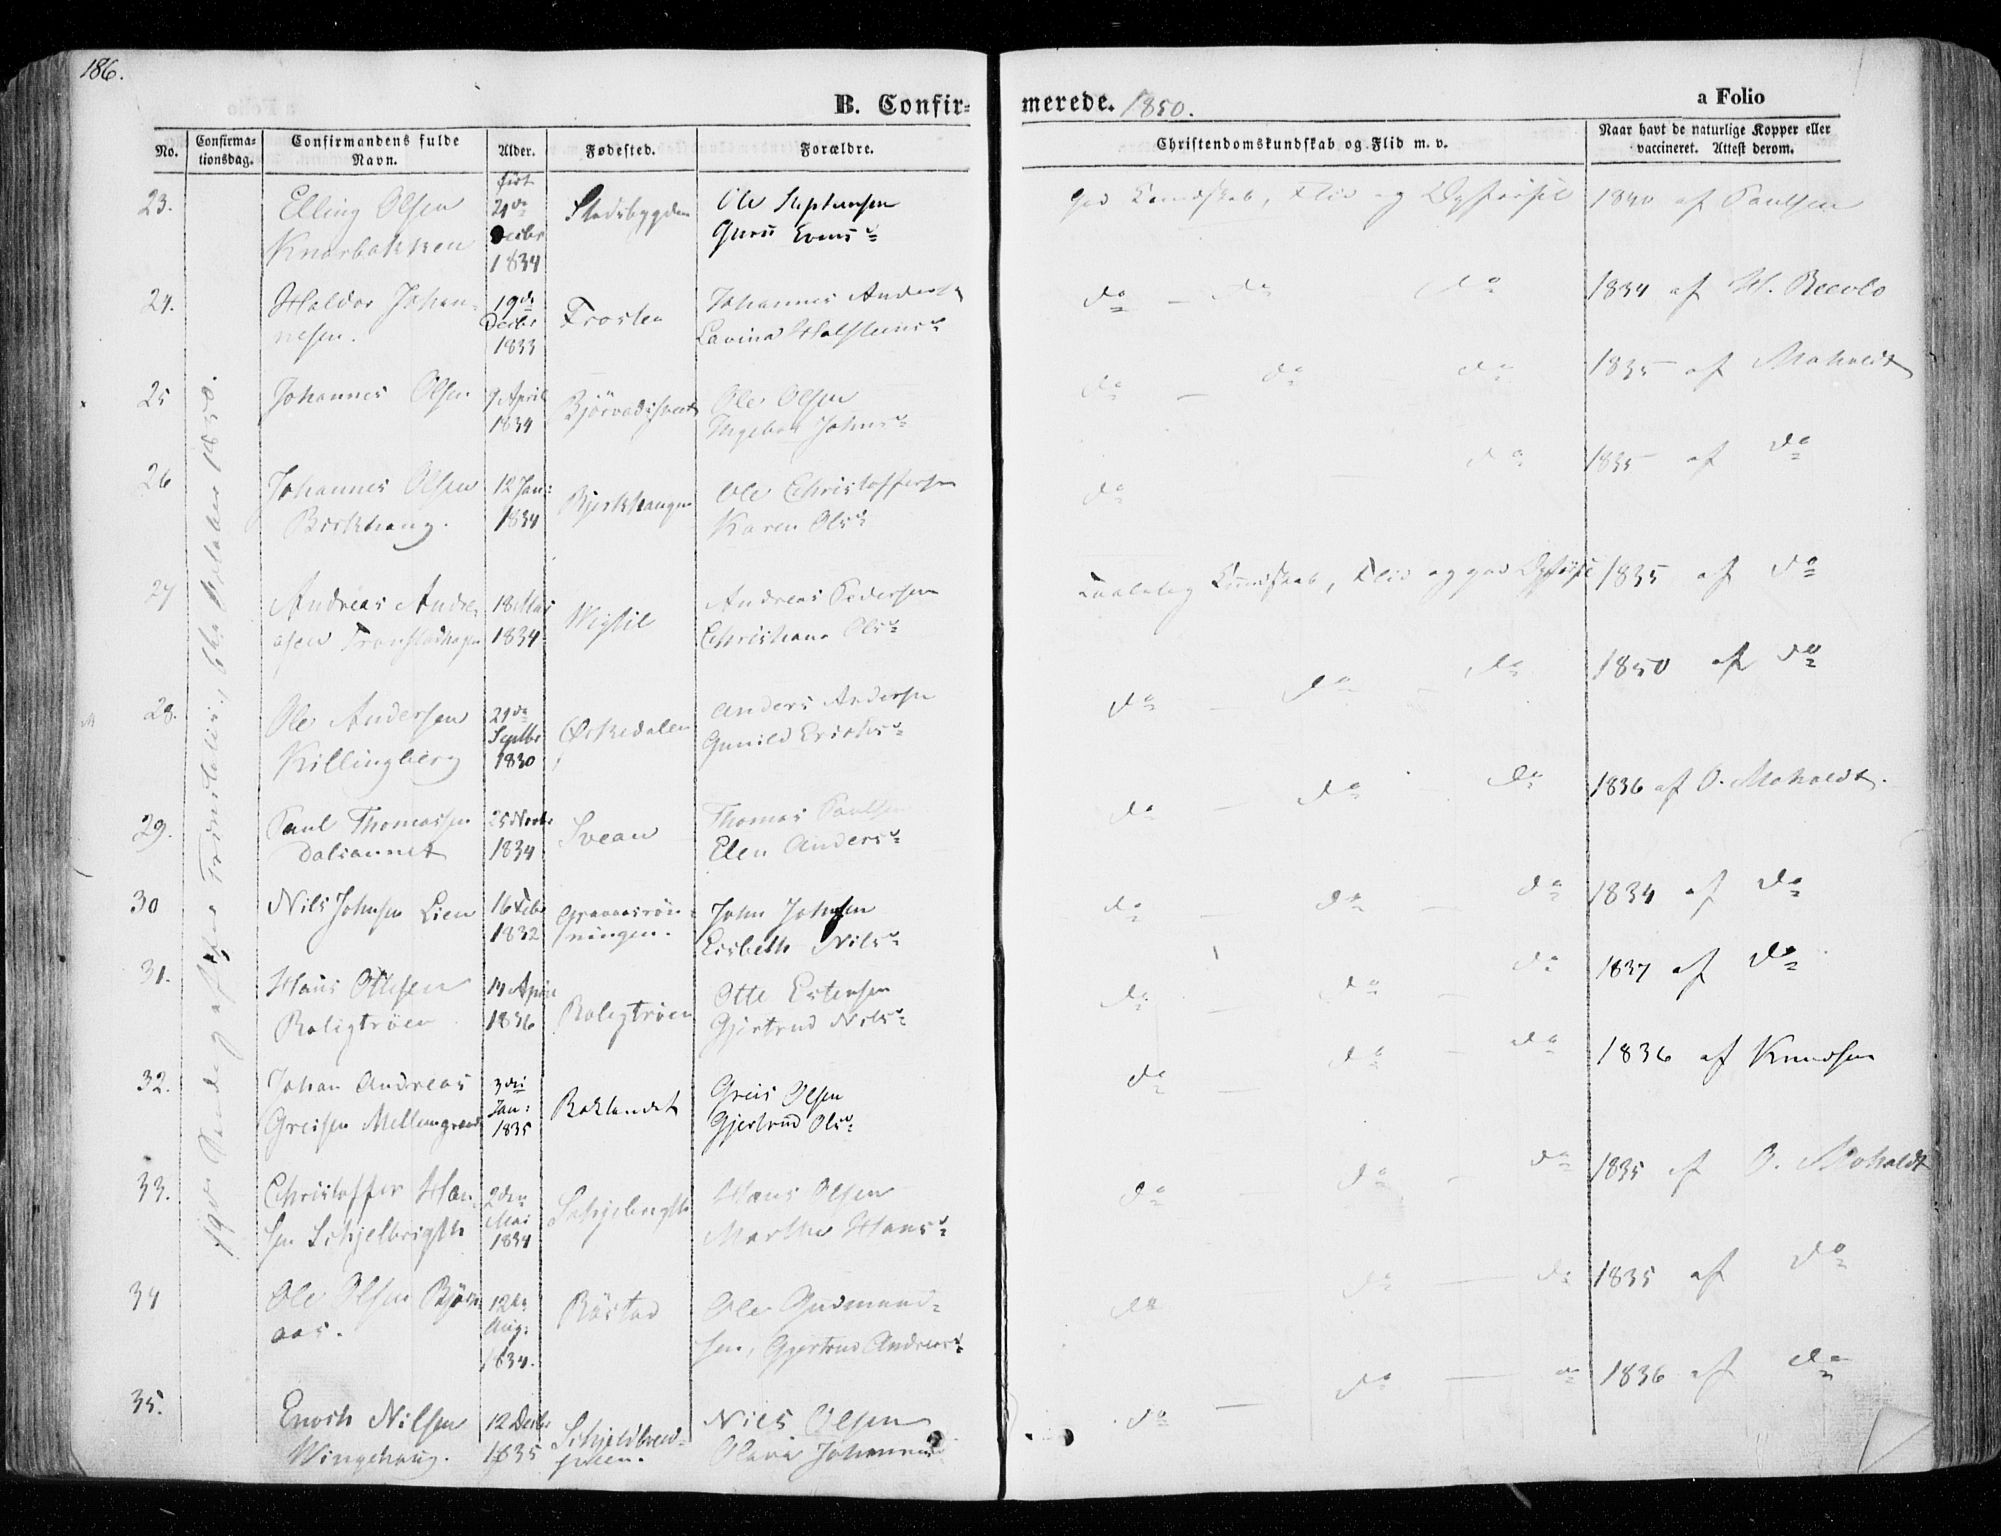 186.
B. Confir-
merede. 1850.
a Folio
No.
Confirma-
tionsdag.
Confirmandens fulde
Navn.
Alder.
Fødested.
Forældre.
Christendomskundskab og Flid m. v.
Naar havt de naturlige Kopper eller
vaccineret. Attest derom.
Søndag efter Trinitatis, 1850.
23.
Elling Olsen
født
21de
Decbr
1834
Stadsbygden
Ole
Guru Evens
god Kundskab, Flid og
1840 af Paulsen
24.
Haldor Johan-
nesen.
19de
Decbr
1833
Frosten
Johannes Anders
Lavina Halsteins
do – do do
1834 af H.
25
Johannes Olsen
9 April
1834
Ole Olsen
Ingebor Johns
do – do – do
1835 af Moholdt
26
Johannes Olsen
Birkhaug.
12 Jan:
1834
Bjerkhaugen
Ole Christoffersen
Karen Ols
do – do
1835 af do
27
Andreas Andre-
asen
18 Mai
1834
Andreas Pedersen
Christiana Ols
Kundskab, Flid og god
1835 af do
28.
Ole Andersen
Killingberg
21de
Septbr
1830
Ørkedalen
Anders Andersen
Gunild Erichs
do – do – do
1850 af do
29.
Paul Thomassen
Dalsaunet
25
1834
Svean
Thomas Paulsen
Elen Anders
do – do do
1836 af O. Moholdt.
30
Nils Johnsen Lien
16 Febr
1832
Graaasrøn-
ningen.
John Johnsen
Lisbeth Nils
do – do – do
1834 af do
31.
Hans Ottesen
Roligtrøen
14 April
1836
Roligtrøen
Otte Estensen
Gjertrud Nils
do – do – do
1837 af do
32.
Johan Andreas
Greisen
3die
Jan:
1835
Baklandet
Greis Olsen
Gjertrud Ols
do do – do
1836 af Knudsen
33.
Christoffer Han-
sen
2den
Mai
1834
Hans Olsen
Marthe Hans
do – do – do
1835 af O. Moholdt
34
Ole Olsen Bjørn-
aas.
12te
Aug:
1834.
Røstad
Ole Gudmund-
sen, Gjertrud Andreas
do do – do
1835 af do
35.
Enoch Nilsen
Wingehaug.
12 Decbr
1835
Niels Olsen
Olava
do – do – do
1836 af do